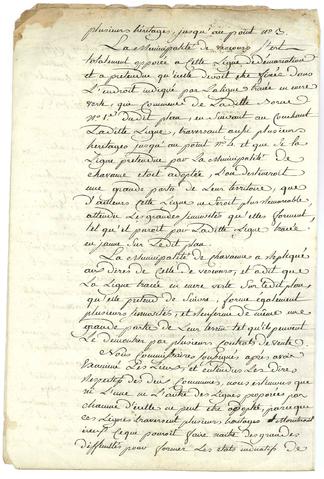 plusieurs héritages, jusqu'au point n.° 3.
La Municipalité de vescours s'est
totalement opposée à Cette Ligne de démarcation
et a prétendue qu'elle devoit être fixée dans
L'endroit indiqué par la ligne tracée en encre
verte, qui commence de La ditte Borne
N.° 1.er du dit plan, en suivant au Couchant
La ditte Ligne, traversant aussi plusieurs
héritages jusqu'au point N.° 4. et que si la
Ligne prétendue par la Municipalité de
chavanne étoit adoptée, on distrairoit
une grande partie de Leur territoire, que
d'ailleurs Cette Ligne ne seroit plus
attendu Les grandes sinuosités qu'elles forment,
tel qu'il paroit par La ditte Ligne tracée
en jaune sur Le dit plan.
La Municipalité de chavanne a répliqué
aux dires de Celle de vescours, et a dit que
La Ligne tracée en encre verte sur Le dit plan
qu'elle prétend de suivre, forme également
plusieurs sinuosités, et renferme de même une
grande partie de Leur terrein tel qu'ils peuvent
Le démontrer par plusieurs contrats de vente
Nous Commissaires soussignés après avoir
Examiné Les Lieux et entendus Les dires
respectifs des deux Communes, nous estimons que
ni L'une ni L'autre des Lignes proposées par
chacune d'icelles ne peut être adoptée, parce que
ces Lignes traversent plusieurs héritages
Ce qui pourroit faire naitre de grandes
difficultés pour former Les états indicatifs de